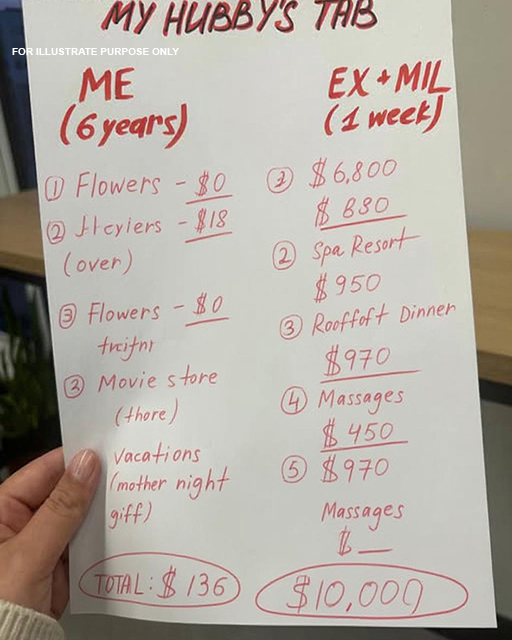 MY HUBBY'S TAB
FOR ILLUSTRATE PURPOSE ONLY
ME
(6 years)
① Flowers - $0
② - $18
(over)
③ Flowers - $0
② Movie store
(thore)
vacations
(mother night
giff)
TOTAL: $ 136
EX + MIL
(1 week)
$6,800
② Spa Resort
$950
③ Rooffoft Dinner
$970
④ Massages
$ 450
⑤ $970
Massages
$ __
$10,000